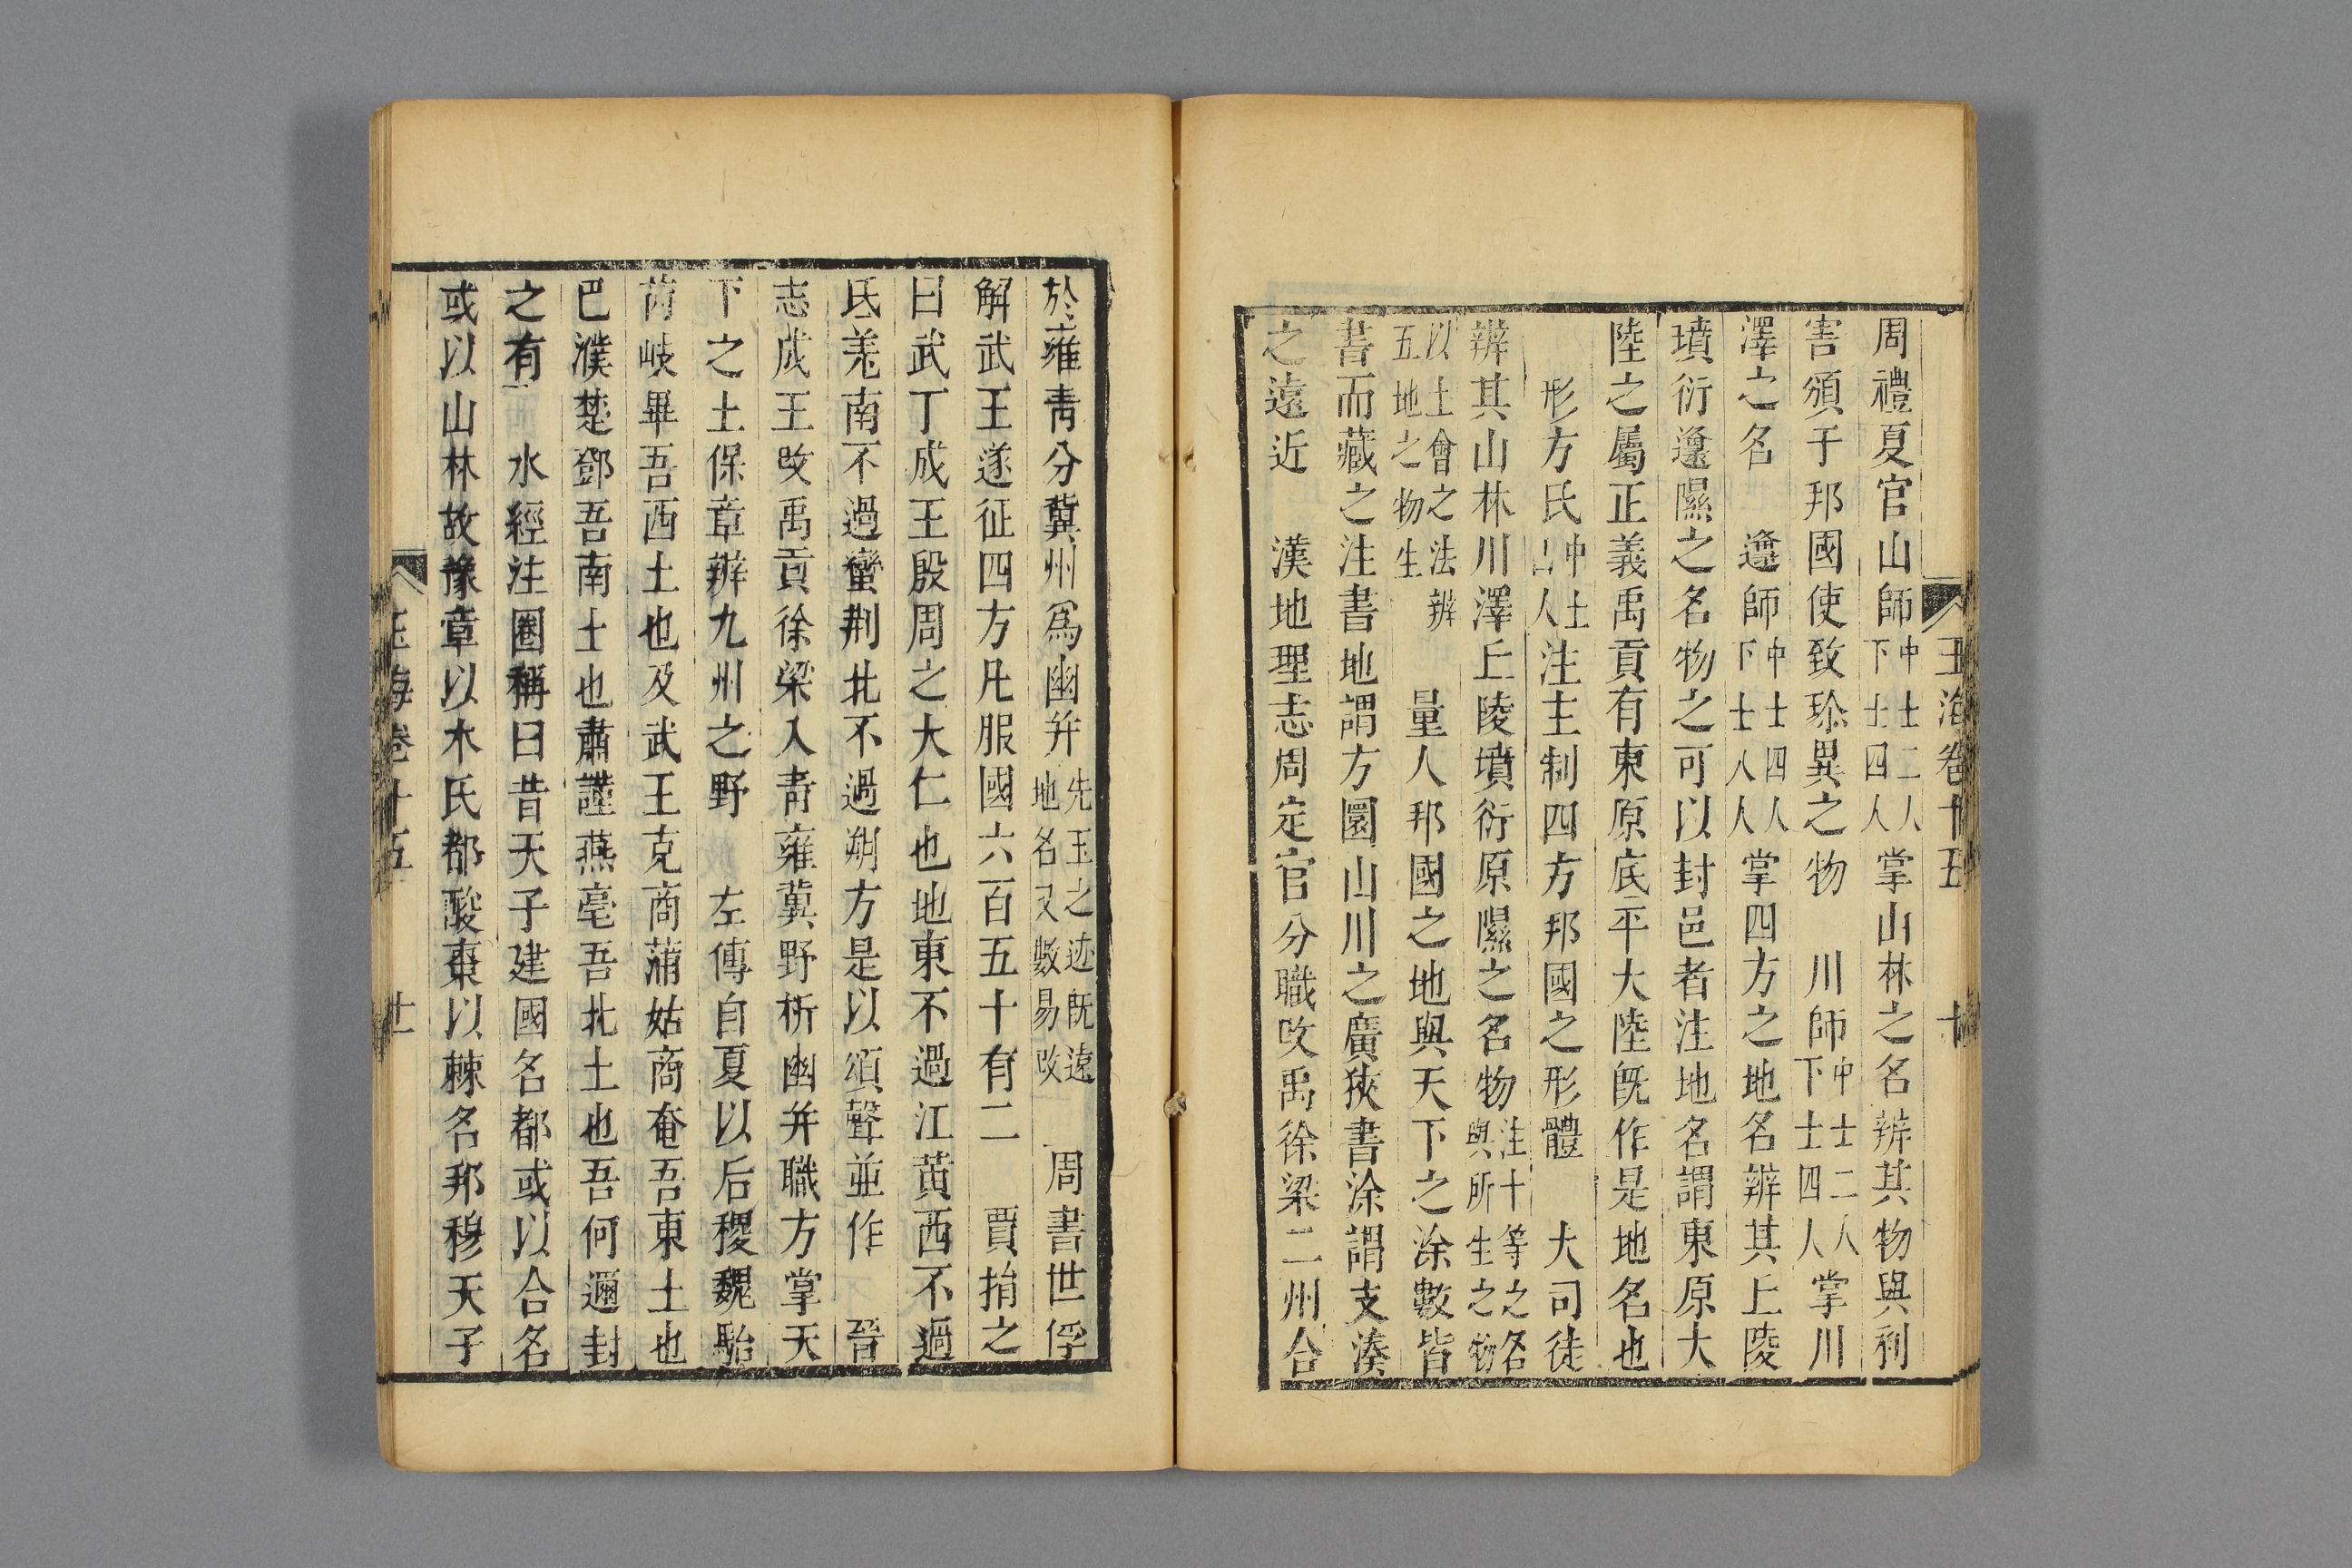 玉海卷十五
周禮夏官山師中士二人下士四人掌山林之名辨其物與利
害頒于邦國使致珎異之物 川師中士二人下士四人掌川
澤之名 邍師中士四人下士八人掌四方之地名辨其上陵
墳衍邍隰之名物之可以封邑者注地名謂東原大
陸之屬正義禹貢有東原底平大陸旣作是地名也
形方氏中士四人注主制四方邦國之形體 大司徒
辨其山林川澤丘陵墳衍原隰之名物注十等之名與所生之物
以土會之法辨五地之物生 量人邦國之地與天下之涂數皆
書而藏之注書地謂方圜山川之廣狹書涂謂支湊
之遠近 漢地理志周定官分職改禹徐梁二州合
於雍靑分冀州爲幽并先王之迹旣遠地名又數易改 周書世俘
解武王遂征四方凡服國六百五十有二 賈捐之
曰武丁成王殷周之大仁也地東不過江黄西不過
氐羌南不過蠻荆北不過朔方是以頌聲並作 晉
志成王改禹貢徐梁入靑雍冀野析幽并職方掌天
下之土保章辨九州之野 左傳自夏以后稷魏駘
芮岐畢吾西土也及武王克商蒲姑商奄吾東土也
巴濮楚鄧吾南土也肅謹燕亳吾北土也吾何邇封
之有 水經注圈稱曰昔天子建國名都或以合名
或以山林故豫章以木氏都酸棗以棘名邦穆天子
玉海卷十五 廿